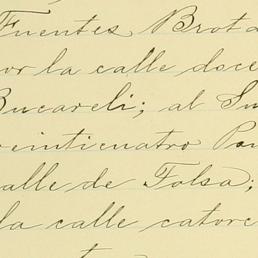 Fuentes Brota
or la calle doce
Bucareli; al Su
veinticuatro Po
calle de Tolsa;
la calle catorc